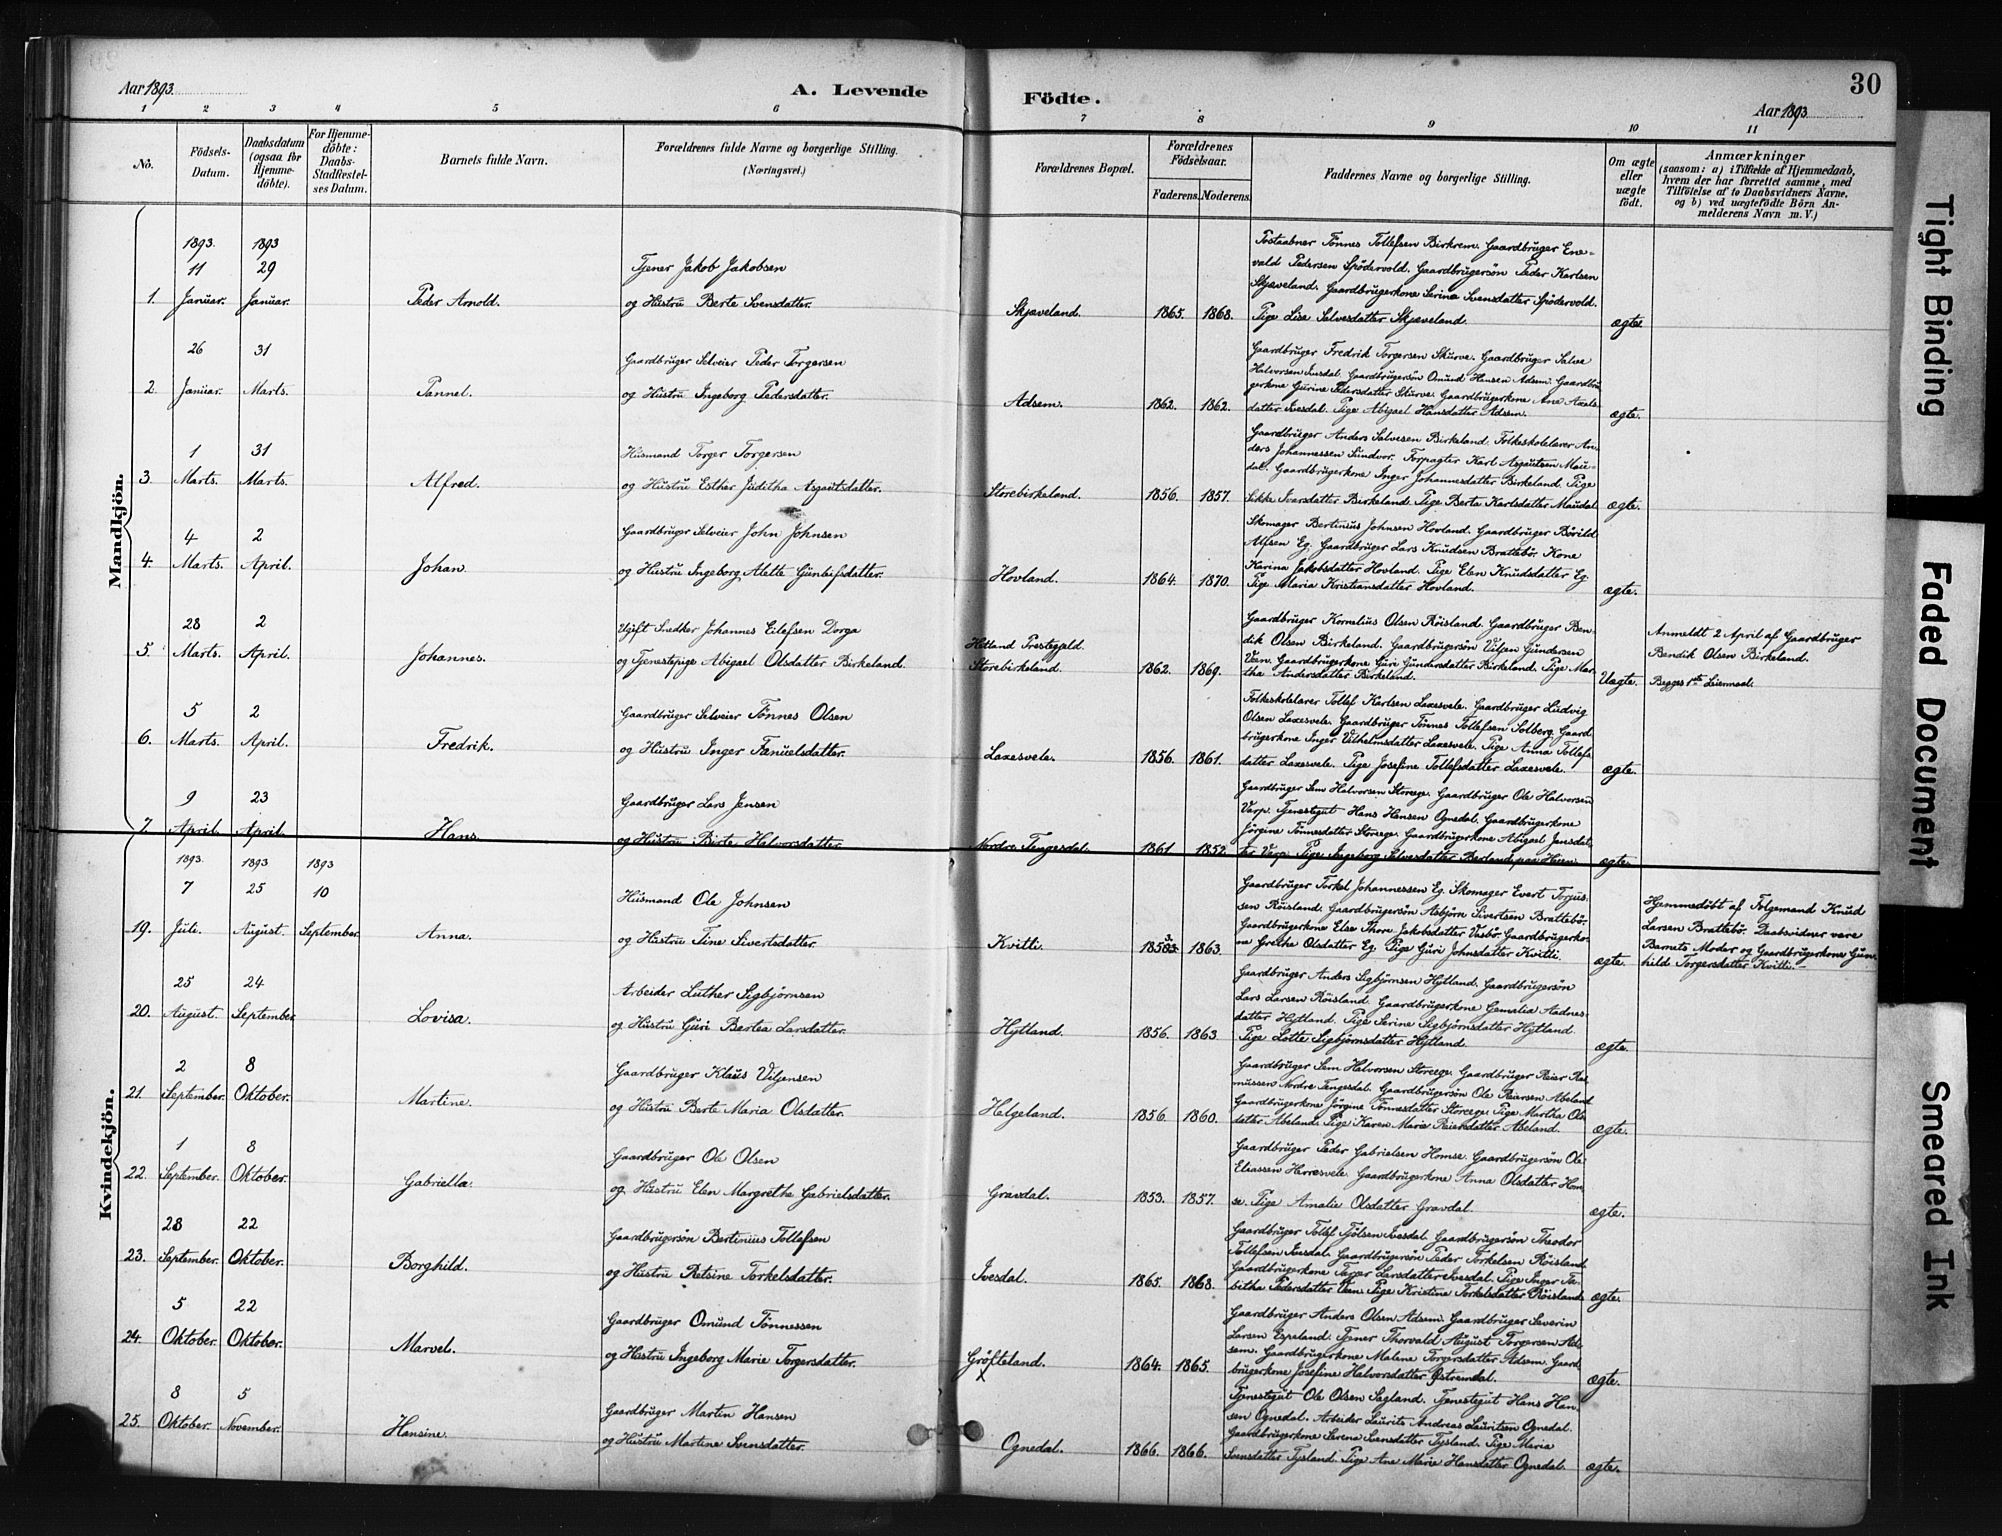 30
Aar 1893.
A. Levende
Födte.
Aar 1893
1 2 3 4 5 6 7 8 9 10 11
No.
Födsels-Datum.
Daabsdatum (ogsaa for Hjemme-döbte).
For Hjemme-döbte: Daabs-Stadfæstel-ses Datum.
Barnets fulde Navn.
Forældrenes fulde Navne og borgerlige Stilling.
(Næringsvei.)
Forældrenes Bopæl.
Forældrenes Födselsaar.
Faderens. Moderens.
Faddernes Navne og borgerlige Stilling.
Om ægte eller uægte födt.
Anmærkninger
(saasom: a) i Tilfælde af Hjemmedaab,
hvem der har forrettet samme, med
Tilföielse af to Daabsvidners Navne.
og b) ved uægtefödte Börn An-
melderens Navn m. V.)
Mandkjön.
1893. 1893
11 29
1. Januar. Januar.
Peder Arnold.
Tjener Jakob Jakobsen
og Hustru Berte Svensdatter.
Skjæveland. 1865. 1868.
Postaabner Tönnes Tollefsen Birkrem. Gaardbruger Ene-
vold Pedersen Spödervold. Gaardbrugersön Peder Karlsen
Skjæveland. Gaardbrugerkone Serina Svensdatter Spödervold.
Pige Lise Salvesdatter Skjæveland.
ægte.
26 31
2. Januar. Marts.
Pannel.
Gaardbruger Selveier Peder Torgersen
og Hustru Ingeborg Pedersdatter.
Adsem. 1862. 1862.
Gaardbruger Fredrik Torgersen Skurve. Gaardbruger Salve
Halvorsen Ivesdal. Gaardbrugersön Omund Hansen Adsem. Gaardbru-
gerkone Gurine Pedersdatter Skurve. Gaardbrugerkone Ane Axels-
datter Ivesdal. Pige Abigael Hansdatter Adsem.
ægte.
1 31
3. Marts. Marts.
Alfred.
Husmand Torger Torgersen
og Hustru Esther Juditha Asgautsdatter.
Storebirkeland. 1856. 1857.
Gaardbruger Anders Salvesen Birkeland. Folkeskolelærer An-
ders Johannessen Sundvor. Forpagter Karl Asgautsen Mau-
dal. Gaardbrugerkone Inger Johannesdatter Birkeland. Pige
Sikke Ivarsdatter Birkeland. Pige Berta Karlsdatter Maudal.
ægte.
4 2
4. Marts. April.
Johan.
Gaardbruger Selveier John Johnsen
og Hustru Ingeborg Alette Gunleifsdatter.
Hovland. 1864. 1870.
Skomager Bertinius Johnsen Hovland. Gaardbruger Börild
Alfsen Eg. Gaardbruger Lars Knudsen Brattebö. Kone
Karina Jakobsdatter Hovland. Pige Elen Knudsdatter Eg.
Pige Maria Kristiansdatter Hovland.
ægte.
28 2
5. Marts. April.
Johannes.
Ugift Snedker Johannes Eilefsen Dorga
og Tjenestepige Abigael Olsdatter Birkeland.
Hetland Prestegjeld.
Storebirkeland. 1862. 1869.
Gaardbruger Kornelius Olsen Röisland. Gaardbruger Ben-
dik Olsen Birkeland. Gaardbrugersön Viljen Gundersen
Veen. Gaardbrugerkone Guri Gundersdatter Birkeland. Pige Mar-
tha Andersdatter Birkeland.
Uægte.
Anmeldt 2 April af Gaardbruger
Bendik Olsen Birkeland.
Begges 1ste Leiermaal.
5 2
6. Marts. April.
Fredrik.
Gaardbruger Selveier Tönnes Olsen
og Hustru Inger Fænuelsdatter.
Laxesvele. 1856. 1861.
Folkeskolelærer Tollef Karlsen Laxesvele. Gaardbruger Ludvig
Olsen Laxesvele. Gaardbruger Tönnes Tollefsen Solberg. Gaard-
brugerkone Inger Vilhelmsdatter Laxesvele. Pige Anna Tollefs-
datter Laxesvele. Pige Josefine Tollefsdatter Laxesvele.
ægte.
9 23
7. April. April.
Hans.
Gaardbruger Lars Jensen
og Hustru Birte Halvorsdatter.
Nordre Tengesdal. 1861 1852.
Gaardbruger Sem Halvorsen Storeege. Gaardbruger Ole Halvorsen
Varp. Tjenestegut Hans Hansen Ognedal. Gaardbrugerkone
Jörgine Tönnesdatter Storeege. Gaardbrugerkone Abigael Jensdat-
ter Varp. Pige Ingeborg Salvesdatter Berland paa Heien.
ægte.
Kvindekjön.
1893. 1893 1893
7 25 10
19. Juli. August. September.
Anna.
Husmand Ole Johnsen
og Hustru Tine Sivertsdatter.
Kvitti. 1853. 1863.
Gaardbruger Torkel Johannessen Eg. Skomager Evert Torjus-
sen Röisland. Gaardbrugersön Asbjörn Sivertsen Brattebö.
Gaardbrugerkone Else Thorn Jakobsdatter Vasbö. Gaardbrugerko-
ne Grethe Olsdatter Eg. Pige Guri Johnsdatter Kvitti.
ægte.
Hjemmedöbt af Folgemand Knud
Larsen Brattebö. Daabsvidner vare
Barnets Moder og Gaardbrugerkone Gun-
hild Torgersdatter Kvitti.
25 24
20. August. September.
Lovisa.
Arbeider Luther Sigbjörnsen
og Hustru Guri Bertea Larsdatter.
Hytland. 1856. 1863.
Gaardbruger Anders Sigbjörnsen Hytland. Gaardbrugersön
Lars Larsen Röisland. Gaardbrugerkone Gemalia Aadnes-
datter Hytland. Pige Serine Sigbjörnsdatter Hytland.
Pige Lotte Sigbjörnsdatter Hytland.
ægte.
2 8
21. September. Oktober.
Martine.
Gaardbruger Klaus Viljensen
og Hustru Berte Maria Olsdatter.
Helgeland. 1856. 1860.
Gaardbruger Sem Halvorsen Storeege. Gaardbruger Reier Ras-
mussen Nordre Tengesdal. Gaardbrugersön Ole Reiersen Abeland.
Gaardbrugerkone Jörgine Tönnesdatter Storeege. Pige Martha Ols-
datter Abeland. Pige Karen Marie Reiersdatter Abeland.
ægte.
1 8
22. September. Oktober.
Gabriella.
Gaardbruger Ole Olsen
og Hustru Elen Margrethe Gabrielsdatter.
Gravdal. 1853. 1857.
Gaardbruger Peder Gabrielsen Homse. Gaardbrugersön Ole
Eliassen Herresvele. Gaardbrugerkone Anna Olsdatter Hom-
se. Pige Amalie Olsdatter Gravdal.
ægte.
28 22
23. September. Oktober.
Borghild.
Gaardbrugersön Bertinius Tollefsen
og Hustru Retsine Torkelsdatter.
Ivesdal. 1865. 1868.
Gaardbruger Tollef Fjölsen Ivesdal. Gaardbrugersön Theodor
Tollefsen Ivesdal. Gaardbrugersön Peder Torkelsen Röisland.
Gaardbrugerkone Larsdatter Ivesdal. Pige Inger Ta-
bitha Pedersdatter Veen. Pige Kristine Torkelsdatter Röisland.
ægte.
5 22
24. Oktober. Oktober.
Marvel.
Gaardbruger Omund Tönnessen
og Hustru Ingeborg Marie Torgersdatter.
Gröfteland. 1864. 1865.
Gaardbruger Anders Olsen Adsem. Gaardbruger Severin
Larsen Espeland. Tjener Thorvald August Torgersen Ad-
sem. Gaardbrugerkone Malene Torgersdatter Adsem. Gaard-
brugerkone Josefine Halvorsdatter Östremdal.
ægte.
8 5
25. Oktober. November.
Hansine.
Gaardbruger Martin Hansen
og Hustru Martine Svensdatter.
Ognedal. 1866. 1866.
Tjenestegut Ole Olsen Sagland. Tjenestegut Hans Han-
sen Ognedal. Arbeider Laurits Andreas Lauritsen Ognedal.
Gaardbrugerkone Serena Svensdatter Tysland. Pige Maria
Svensdatter Tysland. Pige Ane Marie Hansdatter Ognedal.
ægte.
Tight Binding
Faded Document
Smeared Ink